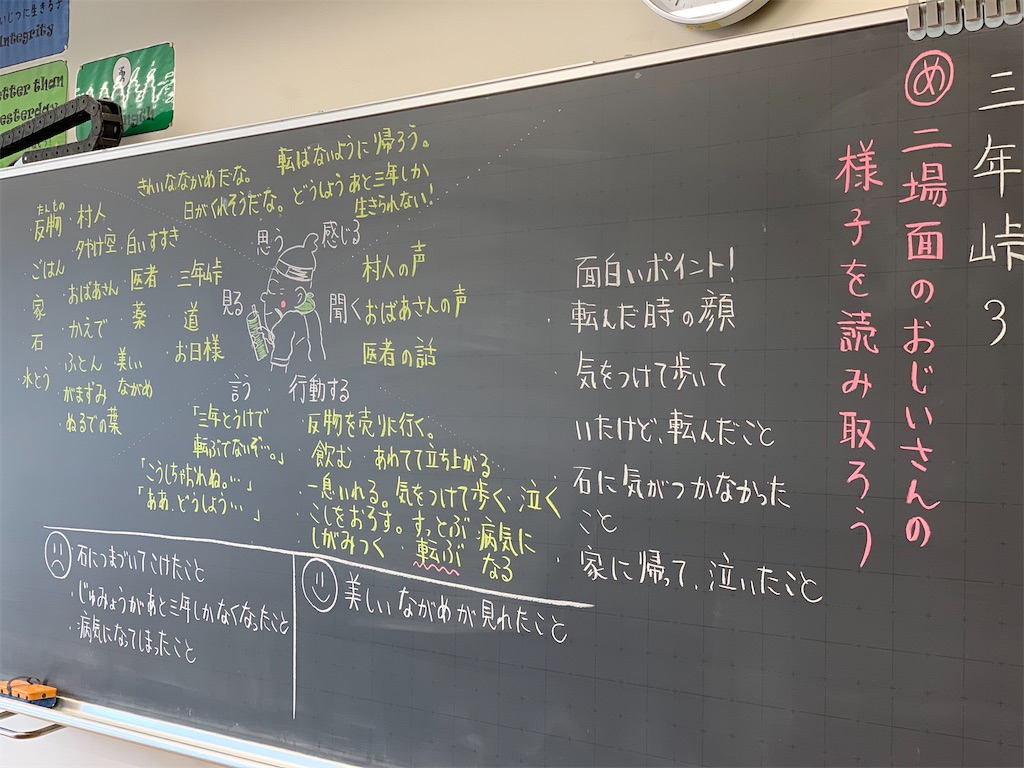 三年峠 3
め 二場面のおじいさんの
様子を読み取ろう
面白いポイント!
・転んだ時の顔
気をつけて歩いて
いたけど、転んだこと
石に気がつかなかった
こと
・家に帰って、泣いたこと
思う 感じる
きれいなながめだな。
転ばないように帰ろう。
日がくれそうだな。どうしようあと三年しか
生きられない!
見る
たんもの
反物
・村人
夕やけ空・白いすすき
ごはん
・おばあさん
医者
三年峠
家
・かえで
薬
・道
石
・ふとん
美しい
ながめ
・お日様
水とう
がまずみ
・ぬるでの葉
聞く
村人の声
・おばあさんの声
医者の話
言う
「三年とうげで
転ぶでないぞ…。」
「こうしちゃおれぬ。…」
「ああ、どうしよう…」
行動する
反物を売りに行く。
・飲む あわてて立ち上がる
・一息いれる。気をつけて歩く・泣く
・こしをおろす。すっとぶ 病気に
しがみつく ・転ぶ なる
石につまづいてこけたこと
・じゅみょうがあと三年しかなくなったこと
・病気になてしまったこと
美しいながめが見れたこと
Integrity
etter than
Yesterday